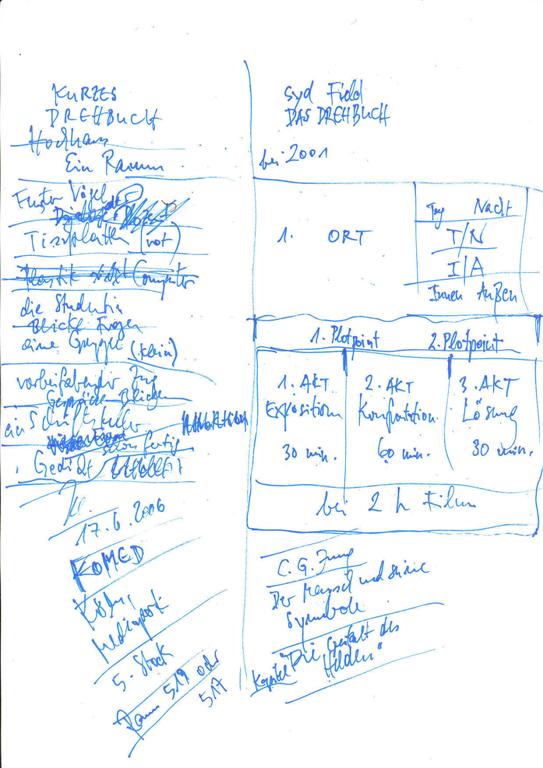 KURZES
DREHBUCH
Hochhaus
Ein Raum
Fenster Vögel
Tischplatten (rot)
Plastik Computer
die Studentin
Blicke Fragen
eine Gruppe (klein)
vorbeifahrender Zug
Gespräche Blicken
ein Schriftsteller
schon fertig
Gedicht
17.6.2006
KOMED
Köln,
Mediapark
5. Stock
Raum 519 oder
517
Syd Field
DAS DREHBUCH
bei 2001
1. ORT
Tag Nacht
T/N
I/A
Innen Außen
1. Plotpoint 2. Plotpoint
1. AKT 2. AKT 3. AKT
Exposition Konfrontation Lösung
30 min. 60 min. 30 min.
bei 2 h Film
C. G. Jung
Der Mensch und seine
Symbole
Kapitel "Die Gestalt des
Helden"